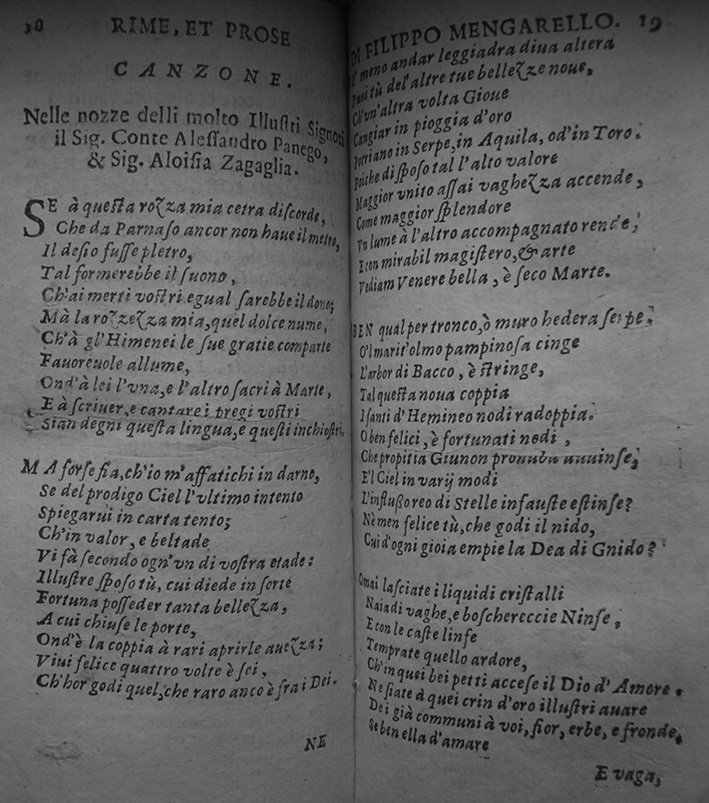 18
RIME, ET PROSE
CANZONE.
Nelle nozze delli molto Illuſtri Signori
il Sig. Conte Aleſſandro Panego,
& Sig. Aloiſia Zagaglia.
SE à queſta rozza mia cetra diſcorde,
Che da Parnaſo ancor non haue il metro,
Il deſio fuſſe pletro,
Tal formerebbe il ſuono,
Ch'ai merti voſtri egual ſarebbe il dono;
Mà la rozzezza mia, quel dolce nume,
Ch'à gl'Himenei le ſue gratie comparte
Fauoreuole allume,
Ond'à lei l'vna, e l'altro ſacri à Marte,
E à ſcriuer, e cantare i pregi voſtri
Sian degni queſta lingua, e queſti inchioſtri.
MA forſe fia, ch'io m'affatichi in darno,
Se del prodigo Ciel l'vltimo intento
Spiegarui in carta tento;
Ch'in valor, e beltade
Vi fà ſecondo ogn'vn di voſtra etade:
Illuſtre ſpoſo tù, cui diede in ſorte
Fortuna poſſeder tanta bellezza,
A cui chiuſe le porte,
Ond'è la coppia à rari aprirle auezza;
Viui felice quattro volte è ſei,
Ch'hor godi quel, che raro anco è frai Dei.
NE
DI FILIPPO MENGARELLO. 19
meno andar leggiadra diua altera
Puoi tù del'altre tue bellezze noue,
Ch'vn'altra volta Gioue
Cangiar in pioggia d'oro
Potriano in Serpe, in Aquila, od'in Toro.
Poiche di ſpoſo tal l'alto valore
Maggior vnito aſſai vaghezza accende,
Come maggior ſplendore
Vn lume à l'altro accompagnato rende,
E con mirabil magiſtero, & arte
Vediam Venere bella, è ſeco Marte.
BEN qual per tronco, ò muro hedera ſerpe,
O'l marit'olmo pampinoſa cinge
L'arbor di Bacco, è ſtringe,
Tal queſta noua coppia
I ſanti d'Hemineo nodi radoppia.
O ben felici, è fortunati nodi,
Che propitia Giunon pronuba auuinſe,
E'l Ciel in varij modi
L'influſſo reo di Stelle infauſte eſtinſe?
Nè men felice tù, che godi il nido,
Cui d'ogni gioia empie la Dea di Gnido?
Omai laſciate i liquidi criſtalli
Naiadi vaghe, e boſchereccie Ninfe,
E con le caſte linfe
Temprate quello ardore,
Ch'in quei bei petti acceſe il Dio d'Amore.
Ne ſiate à quei crin d'oro illuſtri auare
Dei già communi à voi, fior, erbe, e fronde,
Se ben ella d'amare
E vaga,